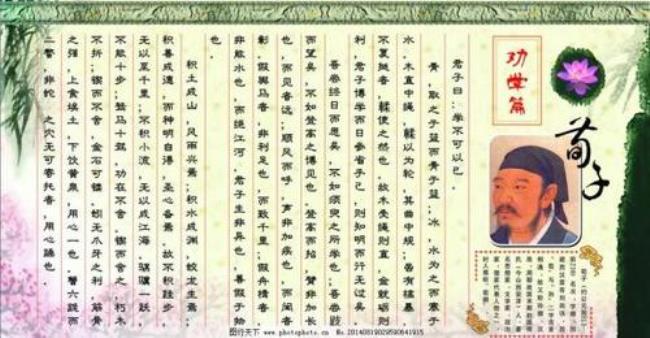 劝学篇
荀子
君子曰：学不可以已。
青，取之于蓝而青于蓝；冰，水为之而寒于
水。木直中绳，鞣以为轮，其曲中规；虽有槁暴
不复挺者，鞣使之然也。故木受绳则直，金就砺则
利，君子博学而日参省乎己，则知明而行无过矣。
吾尝终日而思矣，不如须臾之所学也；吾尝跂
而望矣，不如登高之博见也。登高而招，臂非加长
也，而见者远；顺风而呼，声非加疾也，而闻者
彰。假舆马者，非利足也，而致千里；假舟楫者，
非能水也，而绝江河。君子生非异也，善假于物
也。
积土成山，风雨兴焉；积水成渊，蛟龙生焉；
积善成德，而神明自得，圣心备焉。故不积跬步，
无以至千里；不积小流，无以成江海。骐骥一跃，
不能十步；驽马十驾，功在不舍。锲而舍之，朽木
不折；锲而不舍，金石可镂。蚓无爪牙之利，筋骨
之强，上食埃土，下饮黄泉，用心一也。蟹六跪而
二螯，非蛇 之穴无可寄托者，用心躁也。
No.20140819029590641915